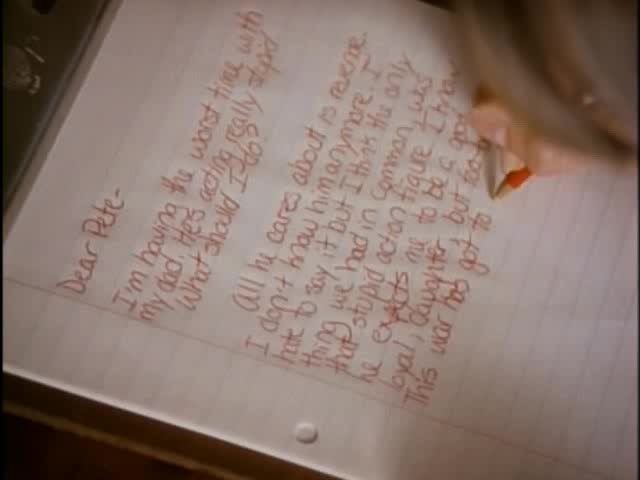 Dear Pete-
I'm having the worst time with
my dad. He's acting really stupid
What should I do?
All he cares about is revenge.
I don't know him anymore. I
hate to say it but I think the only
thing we had in common was
that stupid action figure. I know
he expects me to be a good,
loyal, daughter, but
This war has got to